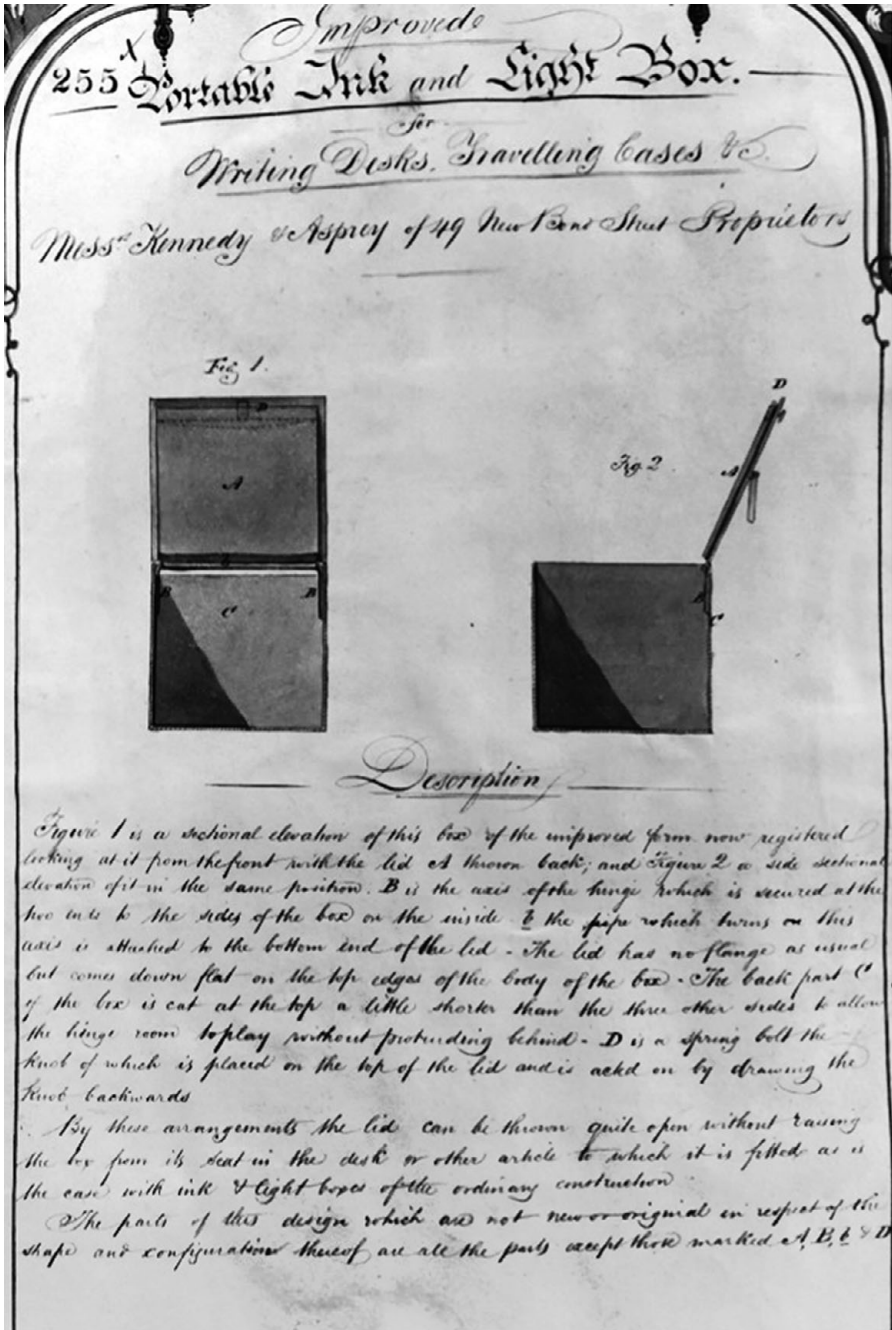 Improved
255 Portable Ink and Light Box.
for
Writing Desks, Travelling Cases &c.
Messrs Kennedy & Asprey of 49 New Bond Street Proprietors
Fig 1.
D
A
B B
C
Fig 2
D
A
B
C
Description
Figure 1 is a sectional elevation of this box of the improved form now registered
looking at it from the front with the lid A thrown back; and Figure 2 a side sectional
elevation of it in the same position. B is the axis of the hinge which is secured at the
two ends to the sides of the box on the inside. b the pipe which turns on this
axis is attached to the bottom end of the lid - The lid has no flange as usual
but comes down flat on the top edges of the body of the box - The back part C
of the box is cut at the top a little shorter than the three other sides to allow
the hinge room to play without protruding behind - D is a spring bolt the
knob of which is placed on the top of the lid and is acted on by drawing the
Knob backwards
By these arrangements the lid can be thrown quite open without raising
the box from its seat in the desk or other article to which it is fitted as is
the case with ink & light boxes of the ordinary construction
The parts of this design which are not new or original in respect of the
shape and configuration thereof are all the parts except those marked A, B, b & D